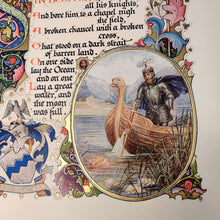 all his knights,
And bore him to a chapel nigh
the field,
A broken chancel with a broken
cross,
That stood on a dark strait
of barren land.
On one side
lay the Ocean,
and on one
Lay a great
water, and
the moon
was full.